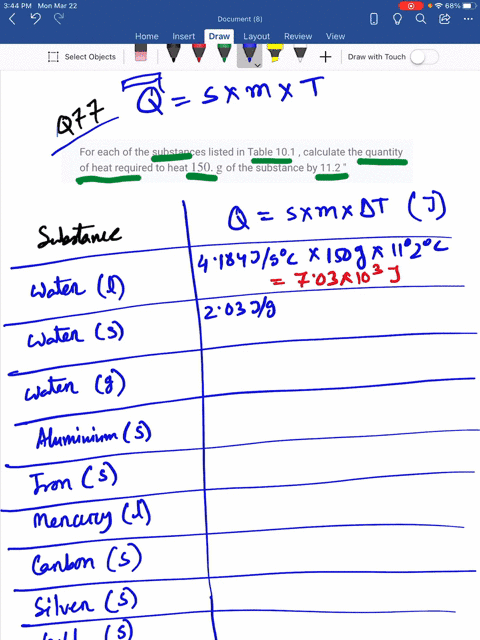 3:44 PM Mon Mar 22
68%
Document (8)
Home Insert Draw Layout Review View
Select Objects
Draw with Touch
Q77
Q = s x m x T
For each of the substances listed in Table 10.1 , calculate the quantity
of heat required to heat 150. g of the substance by 11.2 °
Substance
Q = s x m x ΔT (J)
Water (l)
4.184 J/g°C x 150 g x 11.2°C
= 7.03 x 10³ J
Water (s)
2.03 J/g
Water (g)
Aluminium (s)
Iron (s)
Mercury (l)
Carbon (s)
Silver (s)
(s)